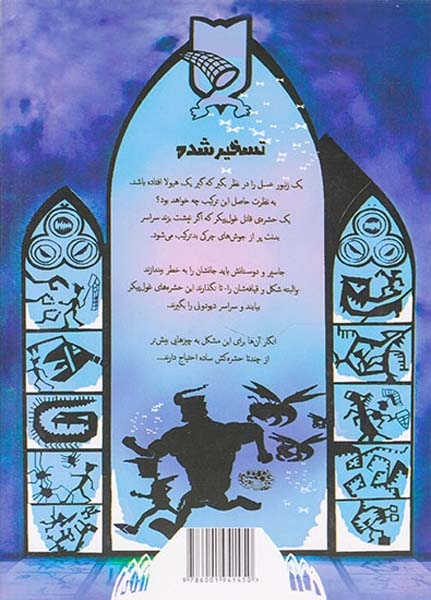 تسخیر شده
یک زنبور عسل را در نظر بگیر که گیر یک هیولا افتاده باشد.
به نظرت حاصل این ترکیب چه خواهد بود؟
یک حشره‌ی قاتل غول‌پیکر که اگر نیشت بزند سراسر
بدنت پر از جوش‌های چرکی بدترکیب می‌شود.
جاسپر و دوستانش باید جانشان را به خطر بیندازند
والبته شکل و قیافه‌شان را، تا نگذارند این حشره‌های غول‌پیکر
بیایند و سراسر دیودونی را بگیرند.
انگار آن‌ها برای این مشکل به چیزهایی بیش‌تر
از چندتا حشره‌کش ساده احتیاج دارند...
9786001941450